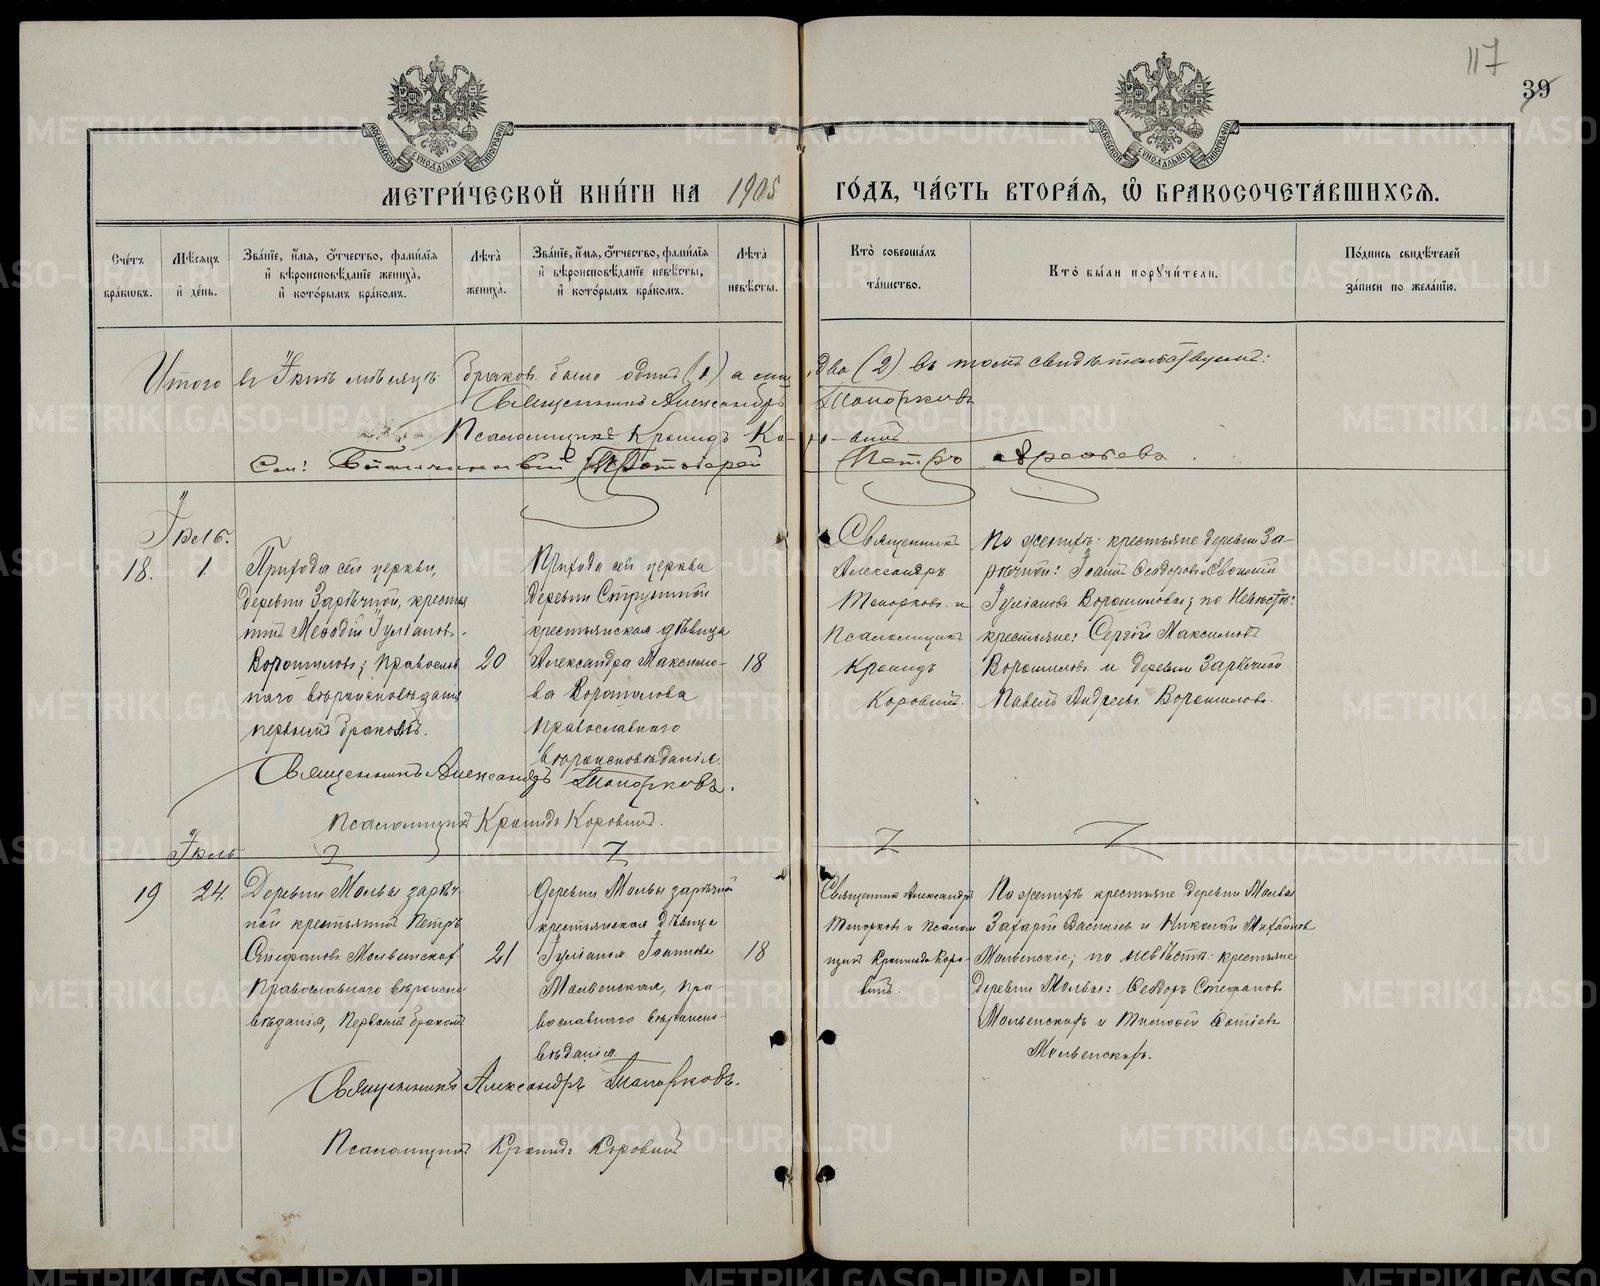 117
39
МОСКОВСКОЙ СѴНОДАЛЬНОЙ ТИПОГРАФІИ
МОСКОВСКОЙ СѴНОДАЛЬНОЙ ТИПОГРАФІИ
МЕТРИ́ЧЕСКОЙ КНИ́ГИ НА 1905 ГО́ДЪ, ЧА́СТЬ ВТОРА́Я, Ѡ БРАКОСОЧЕТА́ВШИХСЯ.
Сче́тъ бра́ковъ.
Мѣ́сяцъ и҆ де́нь.
Зва́нїе, и҆́мя, ѻ҆́тчество, фами́лїя
и҆ вѣроисповѣ́данїе жениха̀,
и҆ кото́рымъ бра́комъ.
Лѣта̀ жениха̀.
Зва́нїе, и҆́мя, ѻ҆́тчество, фами́лїя
и҆ вѣроисповѣ́данїе невѣ́сты,
и҆ кото́рымъ бра́комъ.
Лѣта̀ невѣ́сты.
Кто̀ соверша́лъ та́инство.
Кто̀ бы́ли порꙋчи́тели.
По́дпись свидѣ́телей за́писи по жела́нїю.
Итого въ Іюнѣ мѣсяцѣ браковъ было одинъ (1) а лицъ два (2) въ томъ свидѣтельствуемъ:
Священникъ Александръ Топорковъ
Псаломщикъ Кронидъ Коровинъ.
Петръ Арефьевъ.
Іюль.
18.
1.
Прихода сей церкви,
деревни Зарѣчной, крестья
нинъ Меѳодій Іуліановъ
Ворошиловъ; православ
наго вѣроисповѣданія
первымъ бракомъ.
20
Прихода сей церкви
деревни
крестьянская дѣвица
Александра Максимо-
ва Ворошилова
православнаго
вѣроисповѣданія.
18
Священникъ
Александръ
Топорковъ и
Псаломщикъ
Кронидъ
Коровинъ.
По женихѣ: крестьяне деревни За-
рѣчной: Іоаннъ Ѳеодоровъ и
Іуліановъ Ворошиловы; по невѣстѣ:
крестьяне: Сергій Максимовъ
Ворошиловъ и деревни Зарѣчной
Павелъ Андреевъ Ворошиловъ.
Священникъ Александръ Топорковъ.
Псаломщикъ Кронидъ Коровинъ.
Іюль
19
24.
Деревни Мольвы зарѣч-
ной крестьянинъ Петръ
Стефановъ Мольвенскихъ
Православнаго вѣроиспо
вѣданія, первымъ бракомъ
21
Деревни Мольвы зарѣчной
крестьянская дѣвица
Іуліанія Іоаннова
Мольвенская, пра-
вославнаго вѣроиспо-
вѣданія.
18
Священникъ Александръ
Топорковъ и Псалом
щикъ Кронидъ Коро-
винъ.
По женихѣ крестьяне деревни Мольвы
Захарій Васильевъ и Николай Михайловъ
Мольвенскіе; по невѣстѣ: крестьяне
деревни Мольвы: Ѳеодоръ Стефановъ
Мольвенскихъ и Тимоѳей
Мольвенскихъ.
Священникъ Александръ Топорковъ.
Псаломщикъ Кронидъ Коровинъ
METRIKI.GASO-URAL.RU